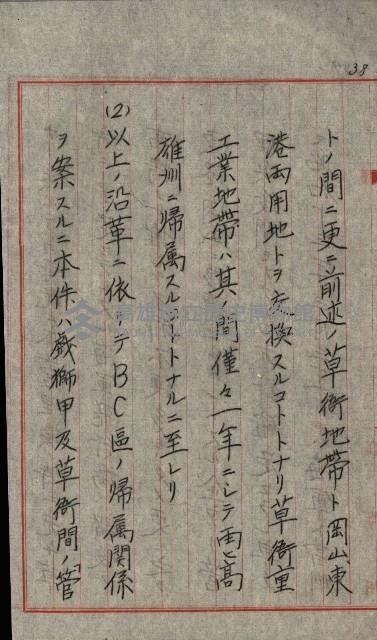 38
トノ間ニ更ニ前述ノ草衙地帶ト岡山東
港両用地トヲ交換スルコトトナリ草衙重
工業地帶ハ其ノ間僅々一年ニシテ再ヒ高
雄州ニ帰属スルコトトナルニ至レリ
(2)以上ノ沿革ニ依ツテBC區ノ帰属関係
ヲ案スルニ本件ハ戯獅甲及草衙間ノ管
高雄市立歷史博物館